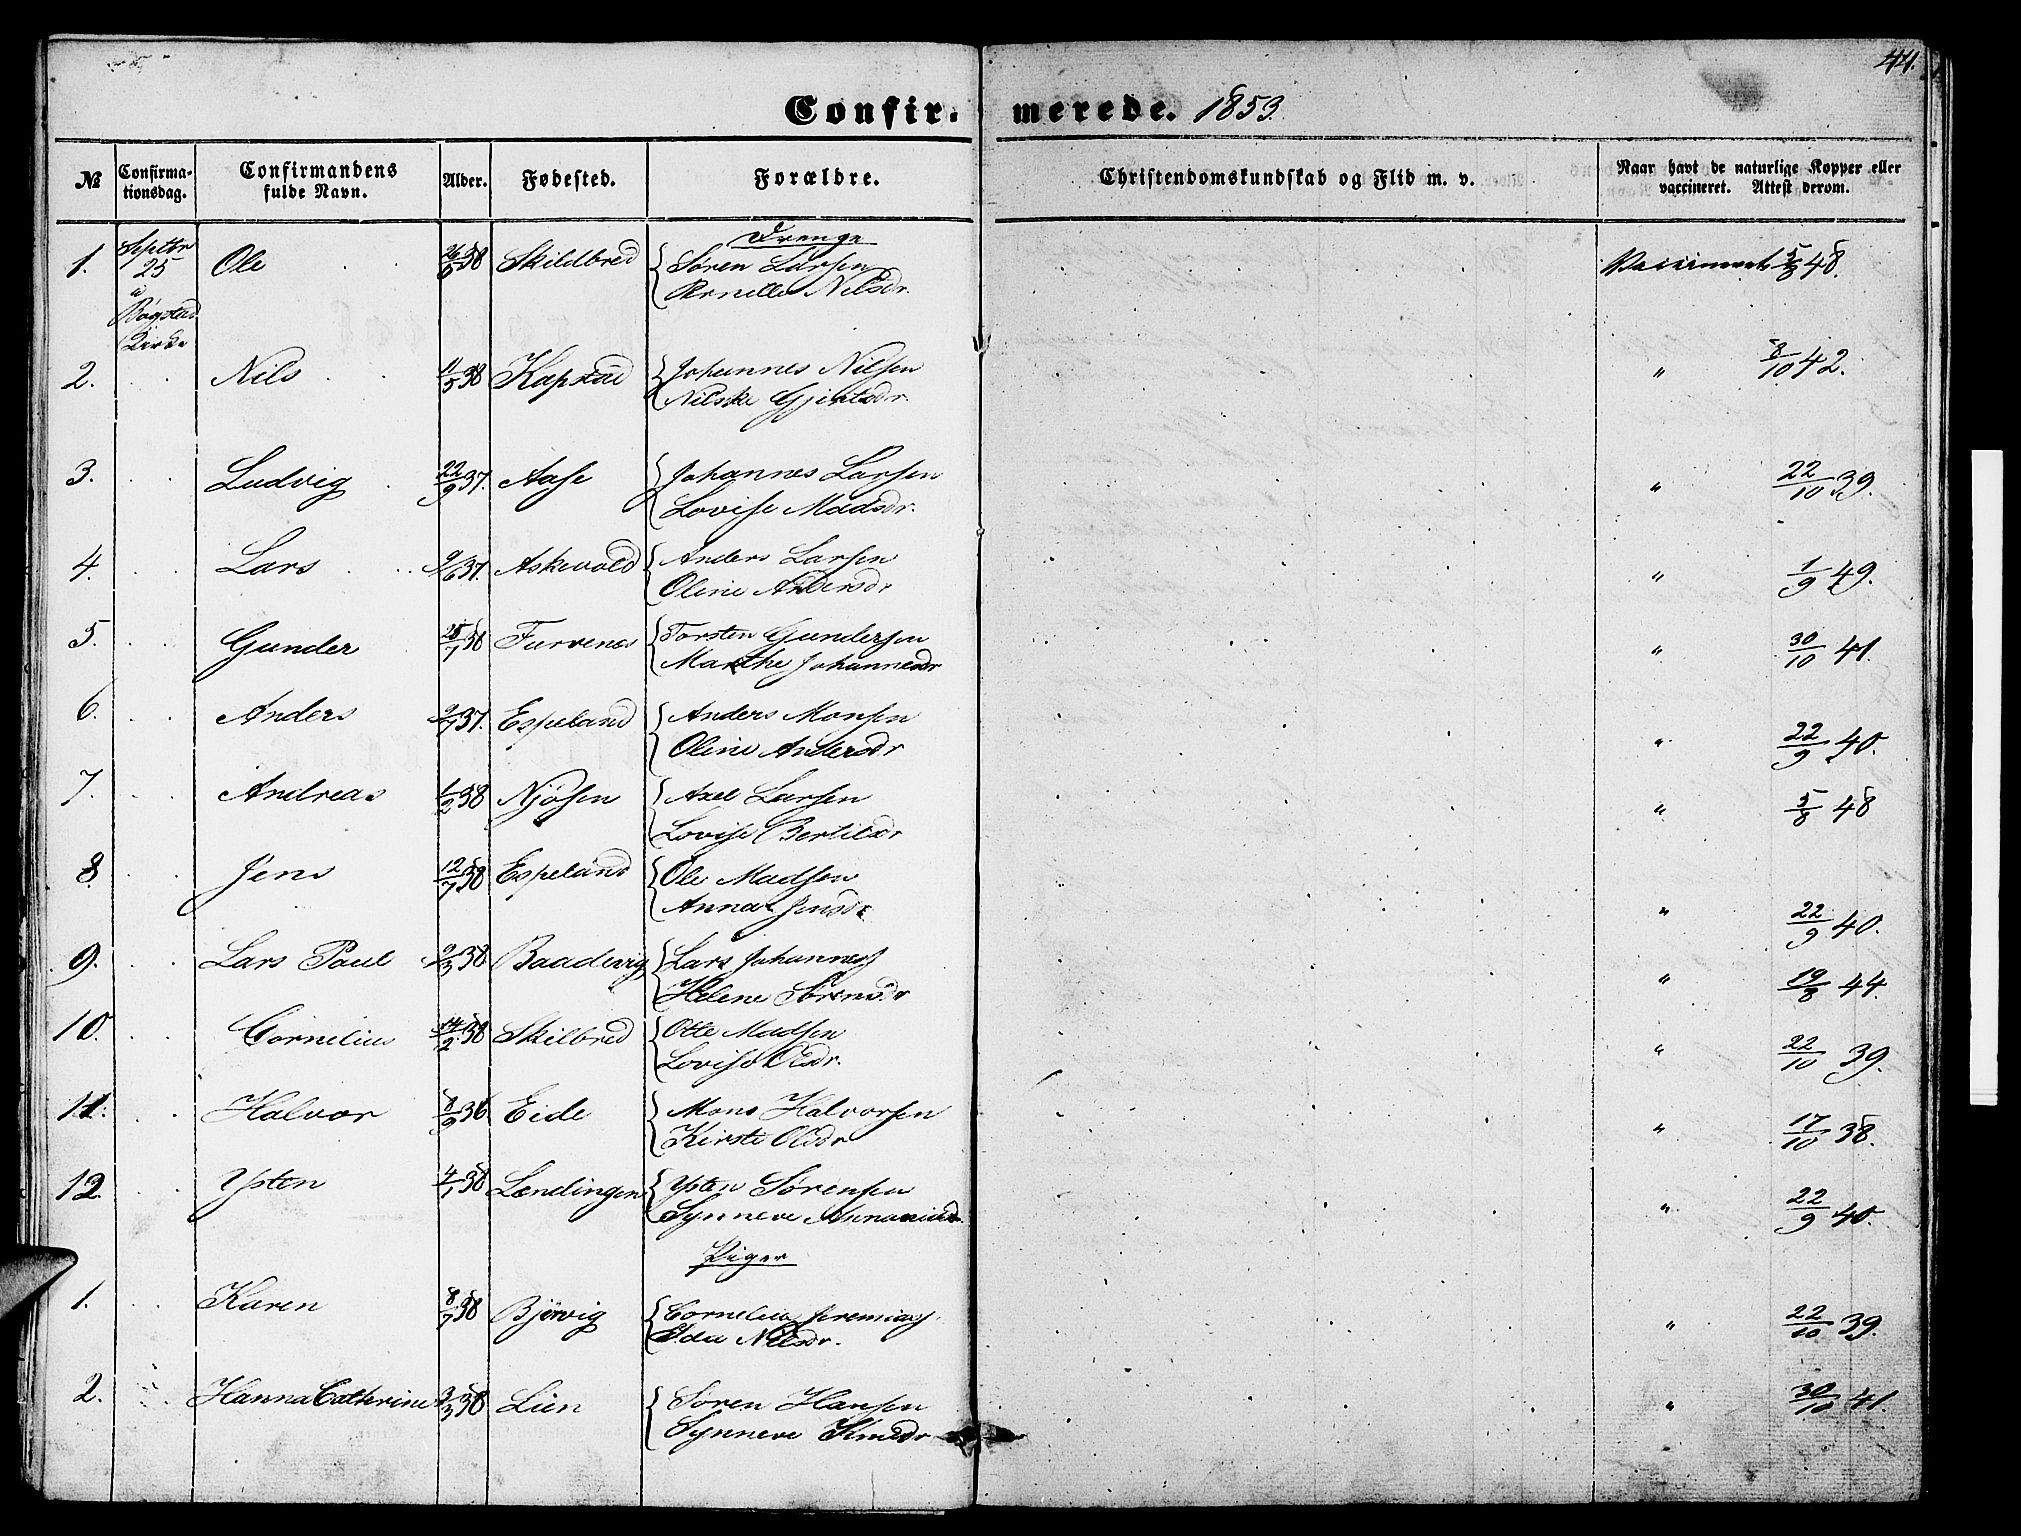 44.
Confirmerede. 1853.
№ Confirmationsdag. Confirmandens fulde Navn. Alder. Fødested. Forældre. Christendomskundskab og Flid m. v. Naar havt de naturlige Kopper eller vaccineret. Attest derom.
Drenge
1. Septbr 25 i Bøgstad Kirke Ole 38 Skildbred Søren Larsen Vaccineret 5/8 48.
Pernille Nilsdr.
2. Nils 11/5 38 Kapstad Johannes Nilsen " 8/10 42.
Nilske Gjertsdr.
3. Ludvig 22/9 37. Aase Johannes Larsen " 22/10 39.
Lovise Madsdr.
4. Lars 9/6 37. Askevold Anders Larsen " 1/9 49.
Oline Andersdr
5. Gunder 25/1 38 Furvenes Torsten Gundersen " 30/10 41.
Marthe Johannesdr
6. Anders 9/7 37. Espeland Anders Monsen " 22/9 40.
Oline Andersdr
7. Andreas 1/2 38 Njøsen Axel Larsen " 5/8 48
Lovise Bertilsdr
8. Jens 12/7 38 Espeland Ole Madsen " 22/9 40.
Anna Jensdr
9. Lars Paul 9/3 38. Baadevig Lars Johannes " 19/8 44.
Helene Sørensdr
10. Cornelius 14/2 38 Skilbred Otte Madsen " 22/10 39.
Lovise Olsdr.
11. Halvor 8/9 36 Eide Mons Halvorsen " 17/10 38.
Kirsti Olsdr
12. Ysten 4/1 38 Lændingen Ysten Sørensen " 22/9 40.
Synneve Annaniasdr.
Piger
1. Karen 8/7 38 Bjørvig Cornelius Jeremias " 22/10 39.
Ida Nilsdr.
2. Hanna Cathrine 3/3 38 Lien Søren Hansen " 30/10 41.
Synneve Knudsdr